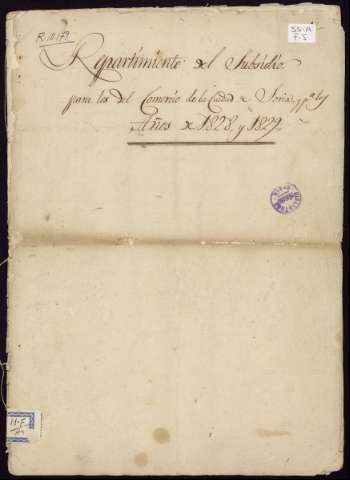 R. 10.179
SS-A
F-5
Repartimiento del Subsidio
para los del Comercio de la Ciudad de Soria, y pª los
Años de 1828, y 1829
11-F